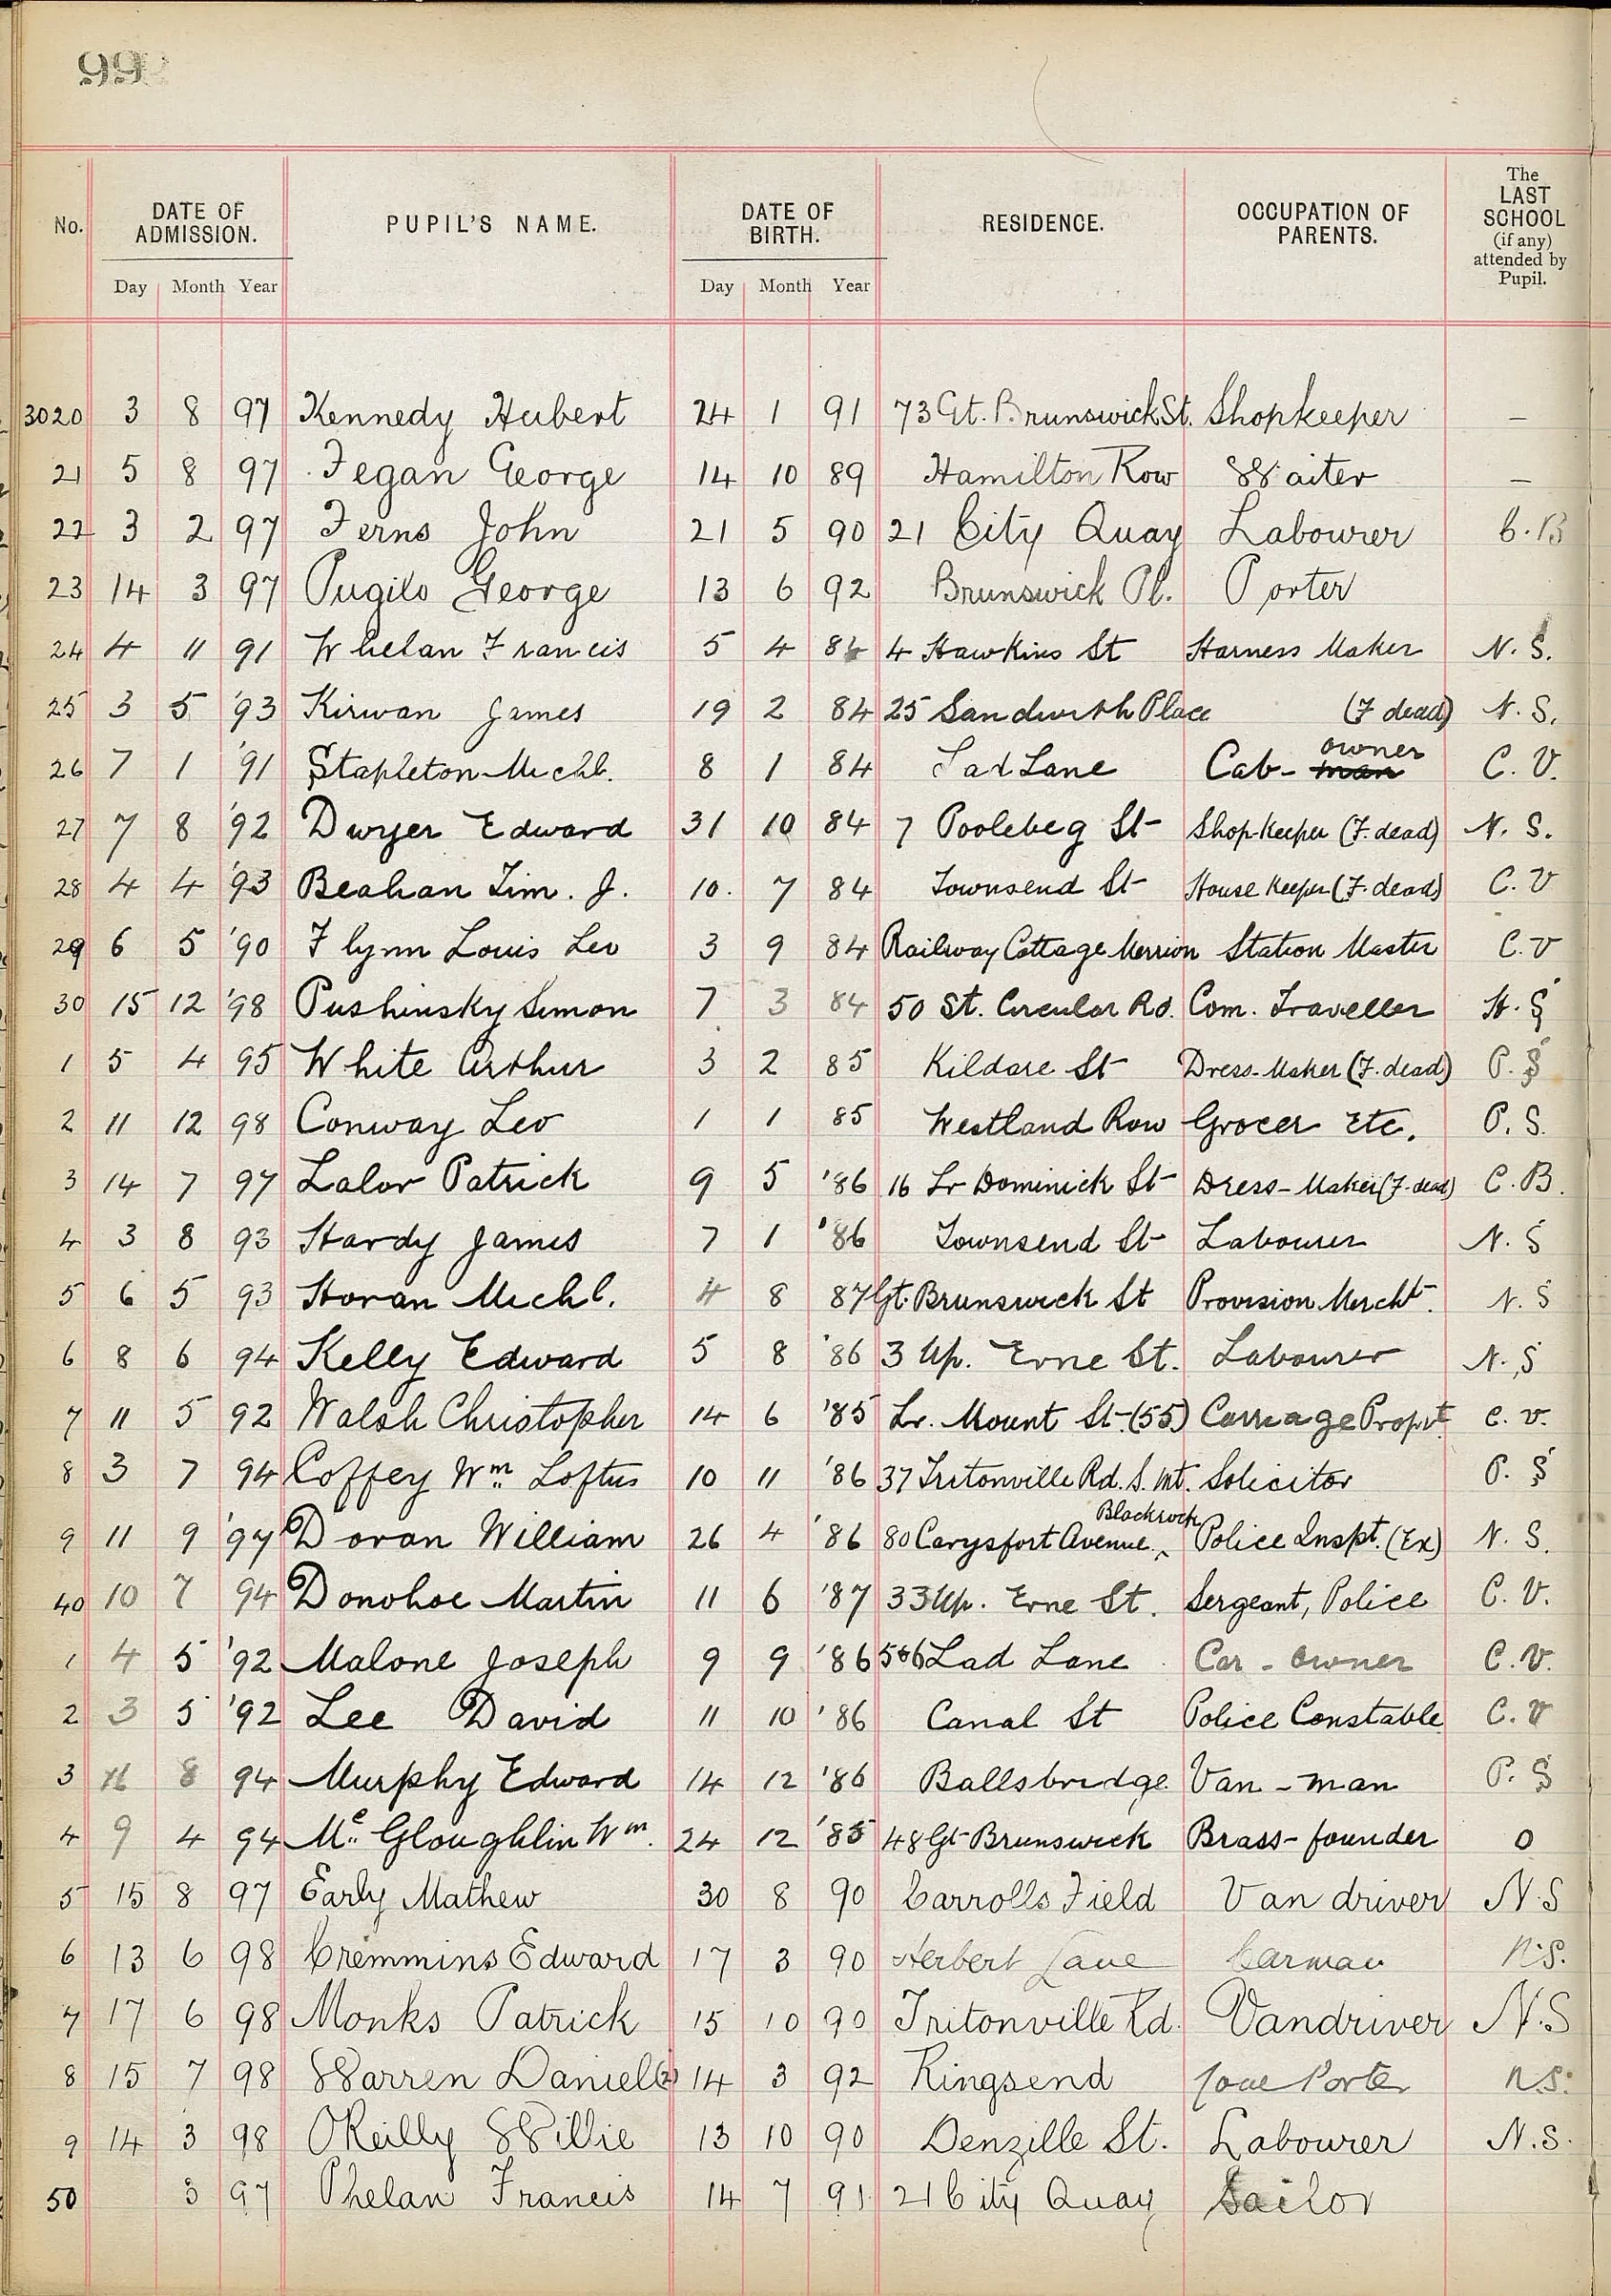 99
No. DATE OF ADMISSION. PUPIL'S NAME. DATE OF BIRTH. RESIDENCE. OCCUPATION OF PARENTS. The LAST SCHOOL (if any) attended by Pupil.
Day Month Year Day Month Year
3020 3 8 97 Kennedy Hubert 24 1 91 73 Gt. Brunswick St. Shopkeeper —
21 5 8 97 Fegan George 14 10 89 Hamilton Row Waiter —
22 3 2 97 Ferns John 21 5 90 21 City Quay Labourer C. B
23 14 3 97 Pugilo George 13 6 92 Brunswick Pl. Porter
24 4 11 91 Whelan Francis 5 4 84 4 Hawkins St Harness Maker N. S.
25 3 5 '93 Kirwan James 19 2 84 25 Sandwith Place (F dead) N. S.
26 7 1 '91 Stapleton Michl. 8 1 84 Lad Lane Cab- man owner C. V.
27 7 8 '92 Dwyer Edward 31 10 84 7 Poolebeg St Shop-Keeper (F. dead) N. S.
28 4 4 '93 Beahan Tim. J. 10. 7 84 Townsend St House Keeper (F. dead) C. V
29 6 5 '90 Flynn Louis Leo 3 9 84 Railway Cottage Merrion Station Master C. V
30 15 12 '98 Pushinsky Simon 7 3 84 50 St. Circular Rd. Com. Traveller H. S
1 5 4 95 White Arthur 3 2 85 Kildare St Dress-Maker (F. dead) P. S
2 11 12 98 Conway Leo 1 1 85 Westland Row Grocer Etc. P. S.
3 14 7 97 Lalor Patrick 9 5 '86 16 Lr Dominick St Dress-Maker (F. dead) C. B.
4 3 8 93 Hardy James 7 1 '86 Townsend St Labourer N. S
5 6 5 93 Horan Michl. 4 8 87 Gt. Brunswick St Provision Mercht. N. S
6 8 6 94 Kelly Edward 5 8 '86 3 Up. Erne St. Labourer N. S
7 11 5 92 Walsh Christopher 14 6 '85 Lr. Mount St. (55) Carriage Propt. C. V.
8 3 7 94 Coffey Wm Loftus 10 11 '86 37 Tritonville Rd. S. Mt. Solicitor P. S
9 11 9 '97 Doran William 26 4 '86 80 Carysfort Avenue. Blackrock Police Inspt. (Ex) N. S.
40 10 7 94 Donohoe Martin 11 6 '87 33 Up. Erne St. Sergeant, Police C. V.
1 4 5 '92 Malone Joseph 9 9 '86 5&6 Lad Lane Car-owner C. V.
2 3 5 '92 Lee David 11 10 '86 Canal St Police Constable C. V
3 8 94 Murphy Edward 14 12 '86 Ballsbridge Van-man P. S
4 9 4 94 Mc Gloughlin Wm. 24 12 '85 48 Gt Brunswick Brass-founder 0
5 15 8 97 Early Mathew 30 8 90 Carrolls Field Van driver N. S
6 13 6 98 Cremmins Edward 17 3 90 Herbert Lane Carman N. S.
7 17 6 98 Monks Patrick 15 10 90 Tritonville Rd. Vandriver N. S
8 15 7 98 Warren Daniel (2) 14 3 92 Ringsend Porter N. S.
9 14 3 98 OReilly Willie 13 10 90 Denzille St. Labourer N. S.
50 3 97 Phelan Francis 14 7 91 21 City Quay Sailor